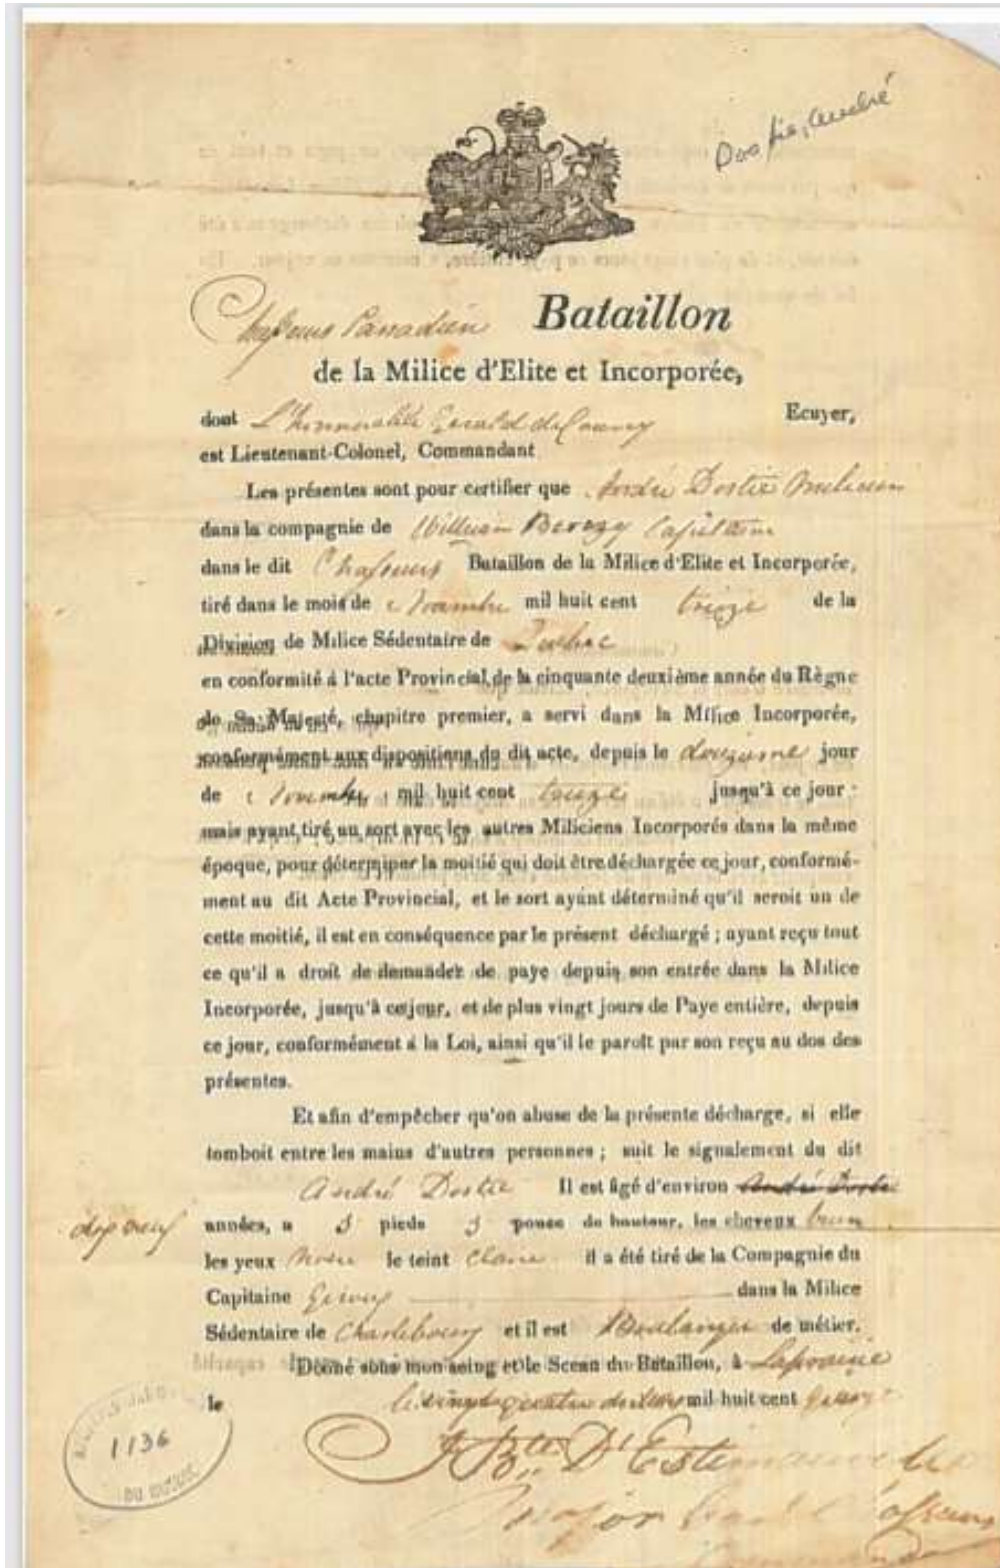 Dostie, André
Chasseurs Canadien Bataillon
de la Milice d'Elite et Incorporée,
dont L'Honorable Gerald de Courcy Ecuyer,
est Lieutenant-Colonel, Commandant
Les présentes sont pour certifier que André Dostie Milicien
dans la compagnie de William Berczy Capitaine
dans le dit Chasseurs Bataillon de la Milice d'Elite et Incorporée,
tiré dans le mois de Novembre mil huit cent treize de la
Division de Milice Sédentaire de Québec
en conformité á l'acte Provincial de la cinquante deuxième année du Règne
de Sa Majesté, chapitre premier, a servi dans la Milice Incorporée,
conformément aux dispositions du dit acte, depuis le douzieme jour
de Novembre mil huit cent treize jusqu'à ce jour :
mais ayant tiré au sort avec les autres Miliciens Incorporés dans la même
époque, pour déterminer la moitié qui doit être déchargée ce jour, conformé-
ment au dit Acte Provincial, et le sort ayant déterminé qu'il seroit un de
cette moitié, il est en conséquence par le présent déchargé ; ayant reçu tout
ce qu'il a droit de demander de paye depuis son entrée dans la Milice
Incorporée, jusqu'à ce jour, et de plus vingt jours de Paye entière, depuis
ce jour, conformément á la Loi, ainsi qu'il le paroît par son reçu au dos des
présentes.
Et afin d'empêcher qu'on abuse de la présente décharge, si elle
tomboit entre les mains d'autres personnes ; suit le signalement du dit
André Dostie Il est âgé d'environ André Dostie
dix neuf années, a 5 pieds 3 pouce de hauteur, les cheveux brun
les yeux Noir le teint Clair il a été tiré de la Compagnie du
Capitaine dans la Milice
Sédentaire de Charlebourg et il est Boulanger de métier.
Donné sous mon seing et le Sceau du Bataillon, à Laprairie
le vingt quatre de mars mil huit cent quinze
J Bte D'Estimauville
Major
1136